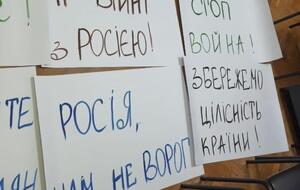 В ВІЙНІ
З РОСІЄЮ!
СТОП
ВОЙНА!
ТЕ
РОСІЯ,
НАМ НЕ ВОРОГ
ЗБЕРЕЖЕНО
ЦІЛІСНІСТЬ
КРАЇНИ!